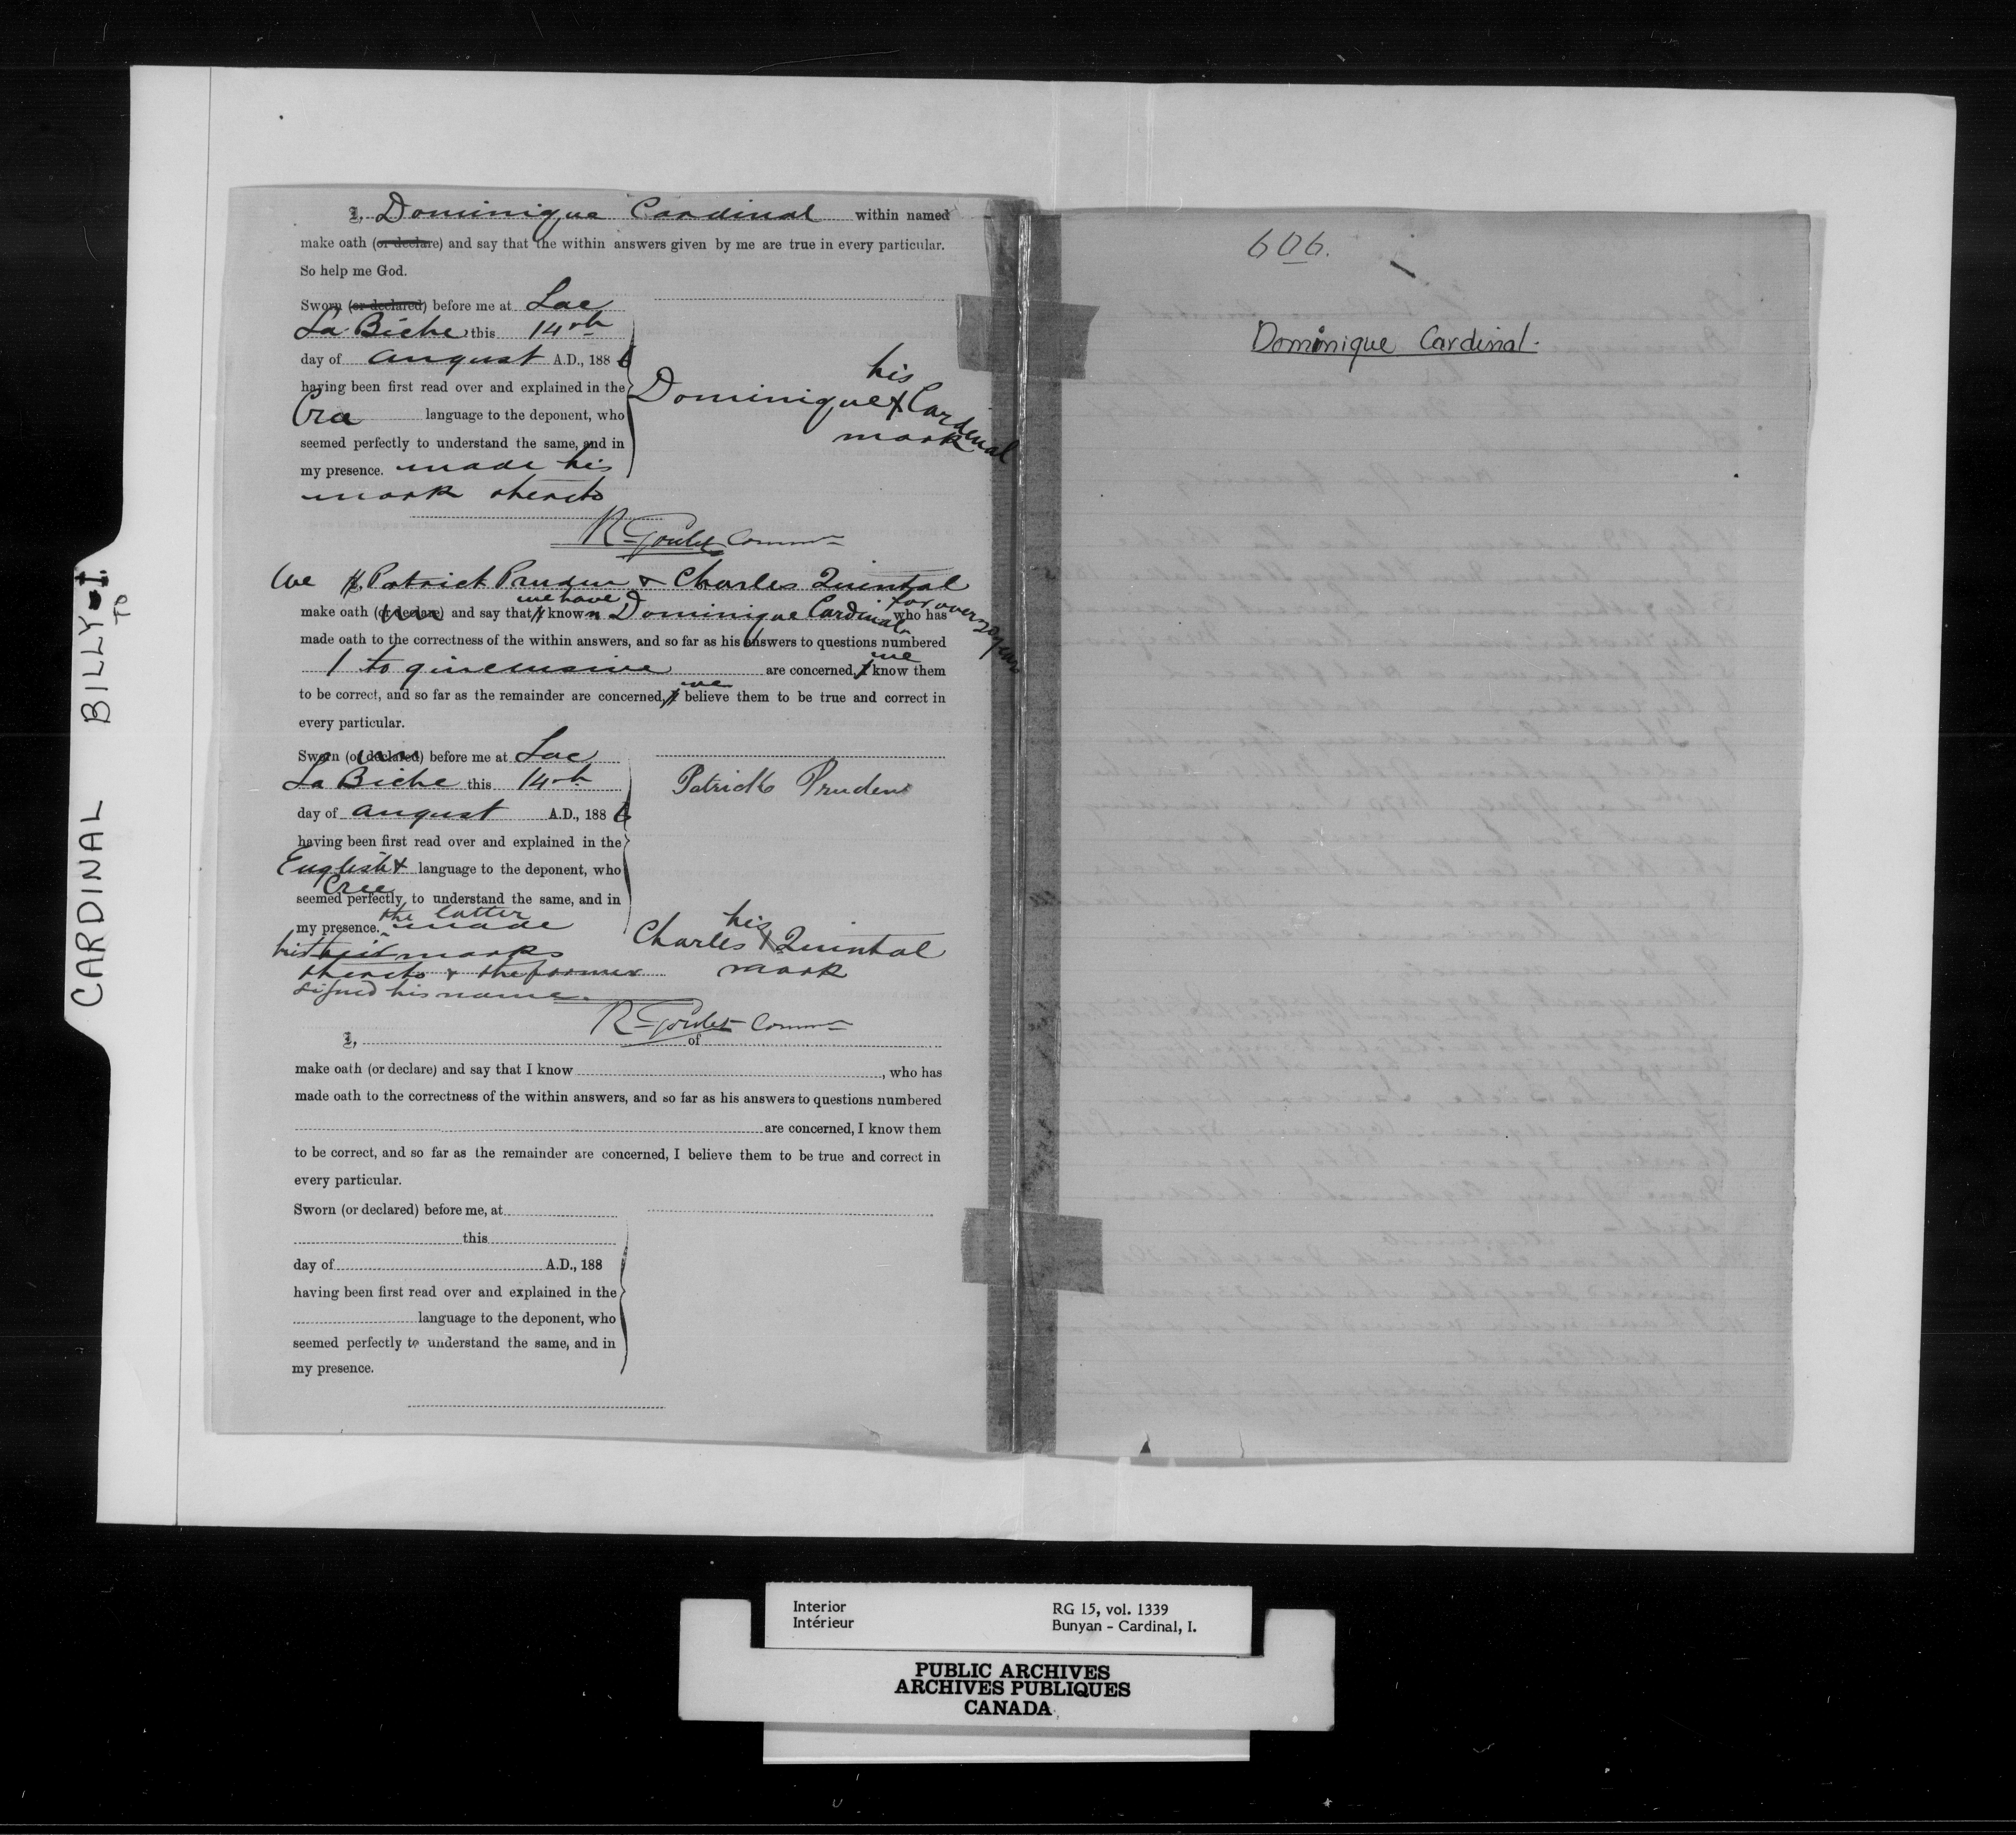 CARDINAL BILLY - I.
TO
I, Dominique Cardinal within named
make oath (or declare) and say that the within answers given by me are true in every particular.
So help me God.
Sworn (or declared) before me at Lac
La Biche this 14th
day of August A.D., 1886
having been first read over and explained in the
Cree language to the deponent, who
seemed perfectly to understand the same, and in
my presence. made his
mark thereto
his
Dominique X Cardinal
mark
R Goulet Commr
We I, Patrick Pruden & Charles Quintal
make oath (or declare) and say that I we have known Dominique Cardinal for over 20 years who has
made oath to the correctness of the within answers, and so far as his answers to questions numbered
1 to 9 inclusive are concerned, I we know them
to be correct, and so far as the remainder are concerned, I we believe them to be true and correct in
every particular.
Sworn (or declared) before me at Lac
La Biche this 14th
day of August A.D., 1886
having been first read over and explained in the
English & Cree language to the deponent, who
seemed perfectly to understand the same, and in
my presence. the latter made
his their marks
thereto & the former
signed his name.
Patrick Pruden
his
Charles X Quintal
mark
R Goulet Commr
I, of
make oath (or declare) and say that I know , who has
made oath to the correctness of the within answers, and so far as his answers to questions numbered
are concerned, I know them
to be correct, and so far as the remainder are concerned, I believe them to be true and correct in
every particular.
Sworn (or declared) before me, at
this
day of A.D., 188
having been first read over and explained in the
language to the deponent, who
seemed perfectly to understand the same, and in
my presence.
606.
Dominique Cardinal.
Interior
Intérieur
RG 15, vol. 1339
Bunyan - Cardinal, I.
PUBLIC ARCHIVES
ARCHIVES PUBLIQUES
CANADA